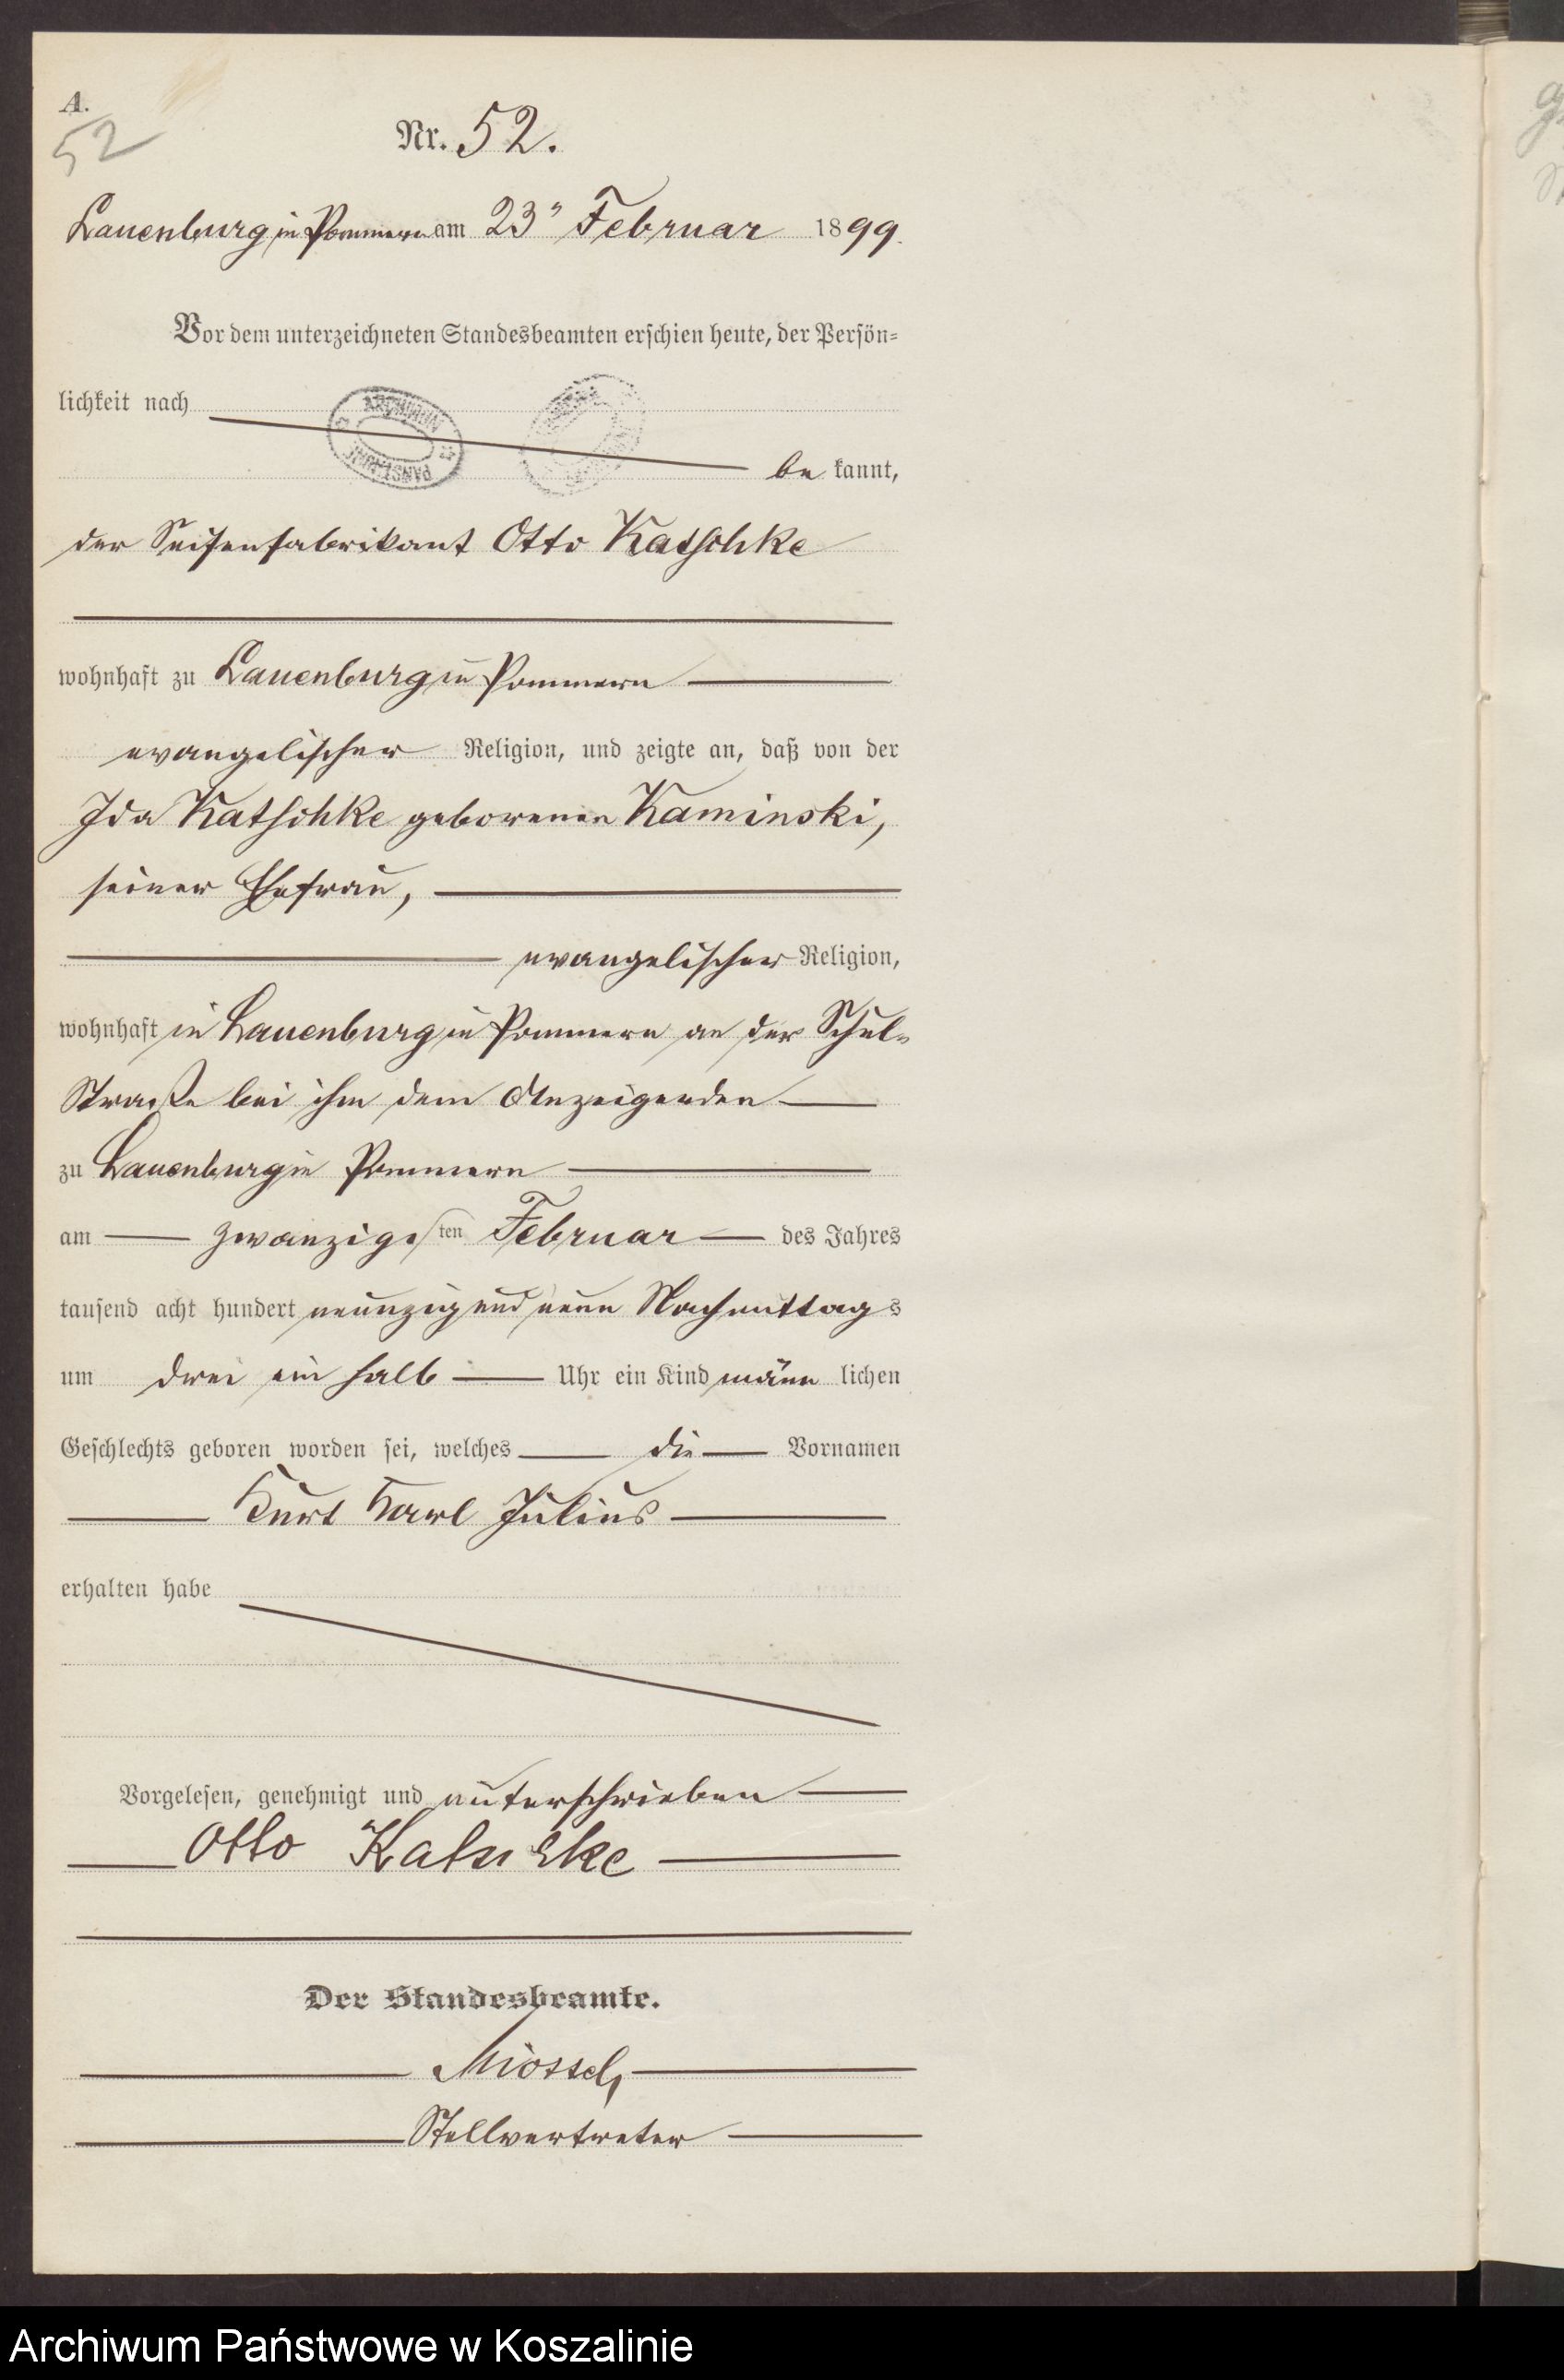 A.
52
Nr. 52.
Lauenburg in Pommern am 23" Februar 1899.
Vor dem unterzeichneten Standesbeamten erschien heute, der Persön=
lichkeit nach
ARCHIWUM PAŃSTWOWE
be kannt,
der Seifenfabrikant Otto Katschke
wohnhaft zu Lauenburg in Pommern
evangelischer Religion, und zeigte an, daß von der
Ida Katschke geborenen Kaminski,
seiner Ehefrau,
evangelischer Religion,
wohnhaft in Lauenburg in Pommern an der Schul=
Straße bei ihm dem Anzeigenden
zu Lauenburg in Pommern
am zwanzigsten Februar des Jahres
tausend acht hundert neunzig und neun Nachmittags
um drei ein halb Uhr ein Kind männlichen
Geschlechts geboren worden sei, welches die Vornamen
Kurt Karl Julius
erhalten habe
Vorgelesen, genehmigt und unterschrieben
Otto Katschke
Der Standesbeamte.
Stellvertreter
Archiwum Państwowe w Koszalinie